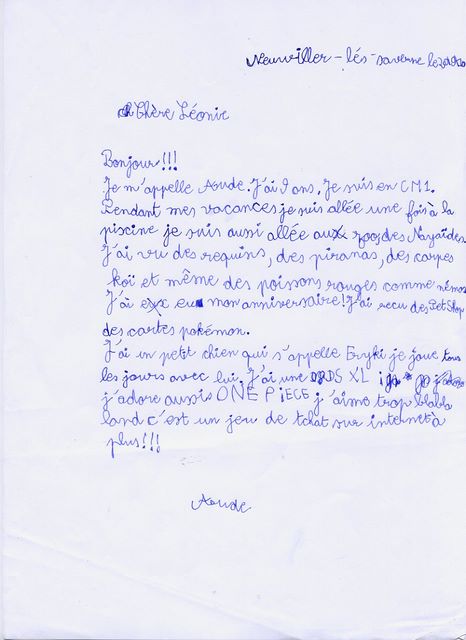 Neuwiller-lès-saverne le
Chère Léonie
Bonjour!!!
Je m'appelle Aoude. J'ai 9 ans. Je suis en CM1.
Pendant mes vacances je suis allée une fois à la
piscine je suis aussi allée aux zoo des Nayaïdes.
J'ai vu des requins, des piranas, des carpes
koï et même des poissons rouges comme némo
J'ai eu mon anniversaire! J'ai recu des Pet Shop
des cartes pokémon.
J'ai un petit chien qui s'appelle Eryki je joue tous
les jours avec lui. J'ai une DS XL
j'adore aussis ONE PiECE j'aime trop blabla
land c'est un jeu de tchat sur internet à
plus!!!
Aoude